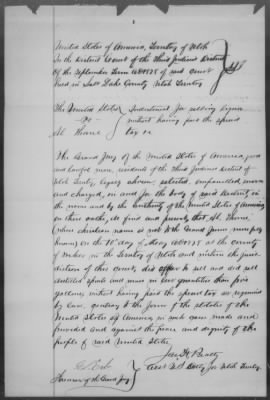 United States of America, Territory of Utah
In the District Court of the Third Judicial District
Of the September Term AD 1875 of said court
held in Salt Lake County Utah Territory
The United States
vs
Al. Thorne
Indictment for selling liquor
without having paid the special
tax &c
The Grand Jury of the United States of America, good
and lawful men, residents of the Third Judicial District of
Utah Territory, legally chosen selected, empannelled sworn
and charged, in and for the body of said District, in
the name and by the authority of the United States of America
on their oaths, do find and present, that Al. Thorne
(whose christian name is not to the Grand Jurors more fully
known) on the day of May AD 1875 at the county
of in the Territory of Utah and within the juris
diction of this court, did offer to sell and did sell
distilled spirits and wines in less quantities than five
gallons without having paid the special tax as required
by law, contrary to the form of the statutes of the
United States of America in such case made and
provided and against the peace and dignity of the
people of said United States
Foreman of the Grand Jury
Asst U.S. Atty for Utah Territory